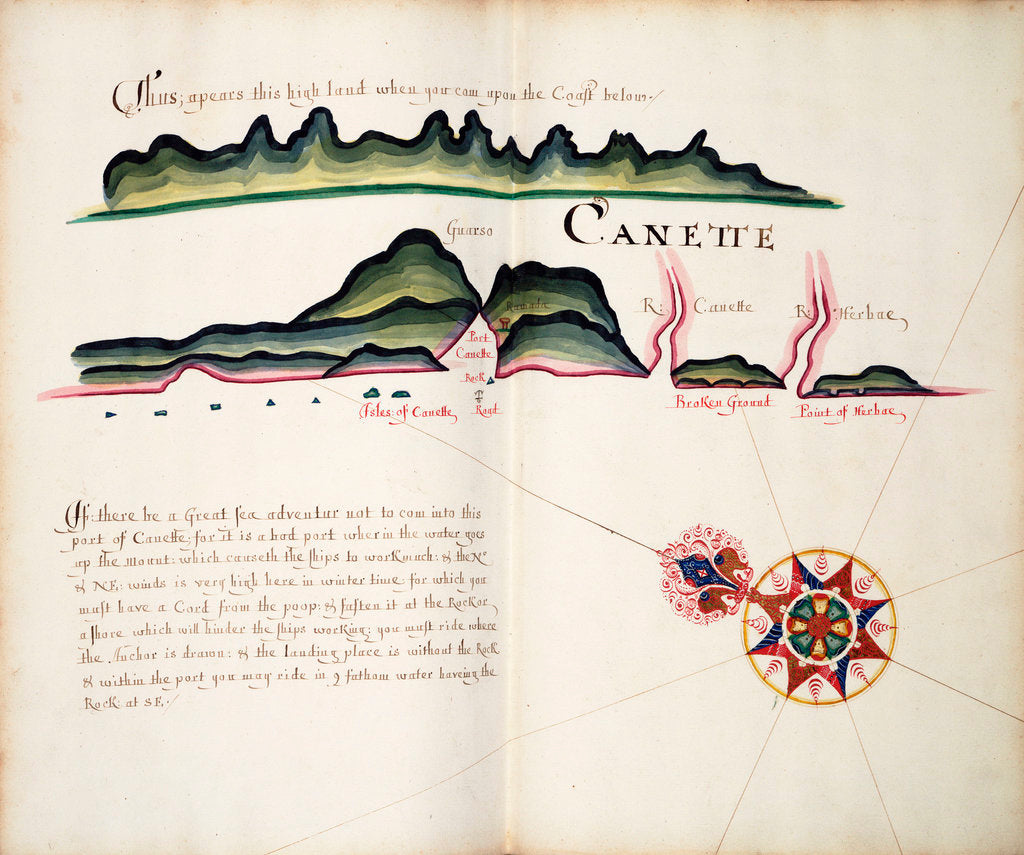 Thus; apears this high land when you com upon the Coast below:/
CANETTE
Guarso
Ramada
R: Canette
R: Herbae
Port
Canette
Rock
Road
Isles: of Canette
Broken Ground
Point of Herbae
If: there be a Great sea adventur not to com into this
port of Canette; for it is a bad port wher in the water goes
up the mount: which causeth the ships to work much: & the No
& NE: winds is very high here in winter time for which you
must have a Cord from the poop: & fasten it at the Rock or
a shore which will hinder the ships working: you must ride where
the Anchor is drawn: & the landing place is without the Rock
& within the port you may ride in 9 fathom water haveing the
Rock: at SE:/